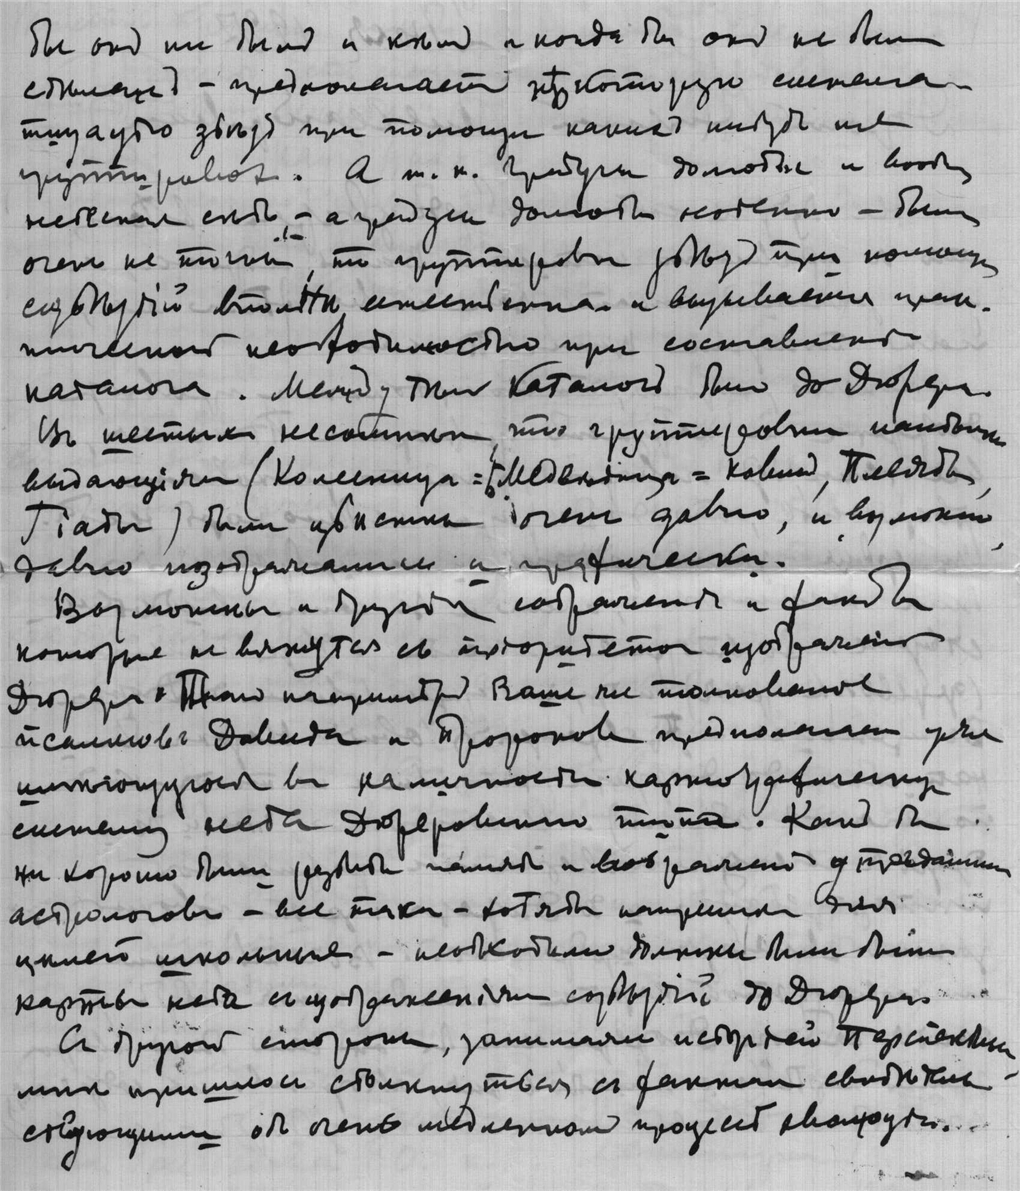 бы онъ ни былъ и кѣмъ и когда бы онъ не былъ
сдѣланъ – предполагаетъ нѣкоторую система-
тизацію звѣздъ при помощи какихъ нибудь
группировокъ. А т. к. градусы долготы и вообще
небесная сѣть – а градусы долготы особенно – были
очень не точны, то группировка звѣздъ при помощи
созвѣздій вполнѣ естественна и вызывается прак-
тической необходимостью при составленіи
каталога. Между тѣмъ каталоги были до Дюрера.
Въ шестыхъ несомнѣнно, что группировки наиболѣе
выдающіяся (Колесница = Б. Медвѣдица = Ковшъ, Плеяды,
Гіады) были извѣстны очень давно, и возможно,
давно изображались и графически.
Возможны и другія соображенія и факты
которые не вяжутся съ изображеній
Дюрера. Такъ напримѣръ Ваше же толкованіе
псалмовъ Давида и Пророковъ предполагаетъ уже
имѣющуюся въ наличности картографическую
систему неба Дюреровскаго типа. Какъ бы
ни хорошо были развиты память и воображеніе у тогдашнихъ
астрологовъ – все таки – хотябы напримѣръ для
цѣлей школьныхъ – необходимо должны были быть
карты неба съ изображеніями созвѣздій до Дюрера.
Съ другой стороны, занимаясь исторіей Перспективы
мнѣ пришлось столкнуться съ фактами свидѣтель-
ствующими объ очень медленномъ процессѣ эволюціи.